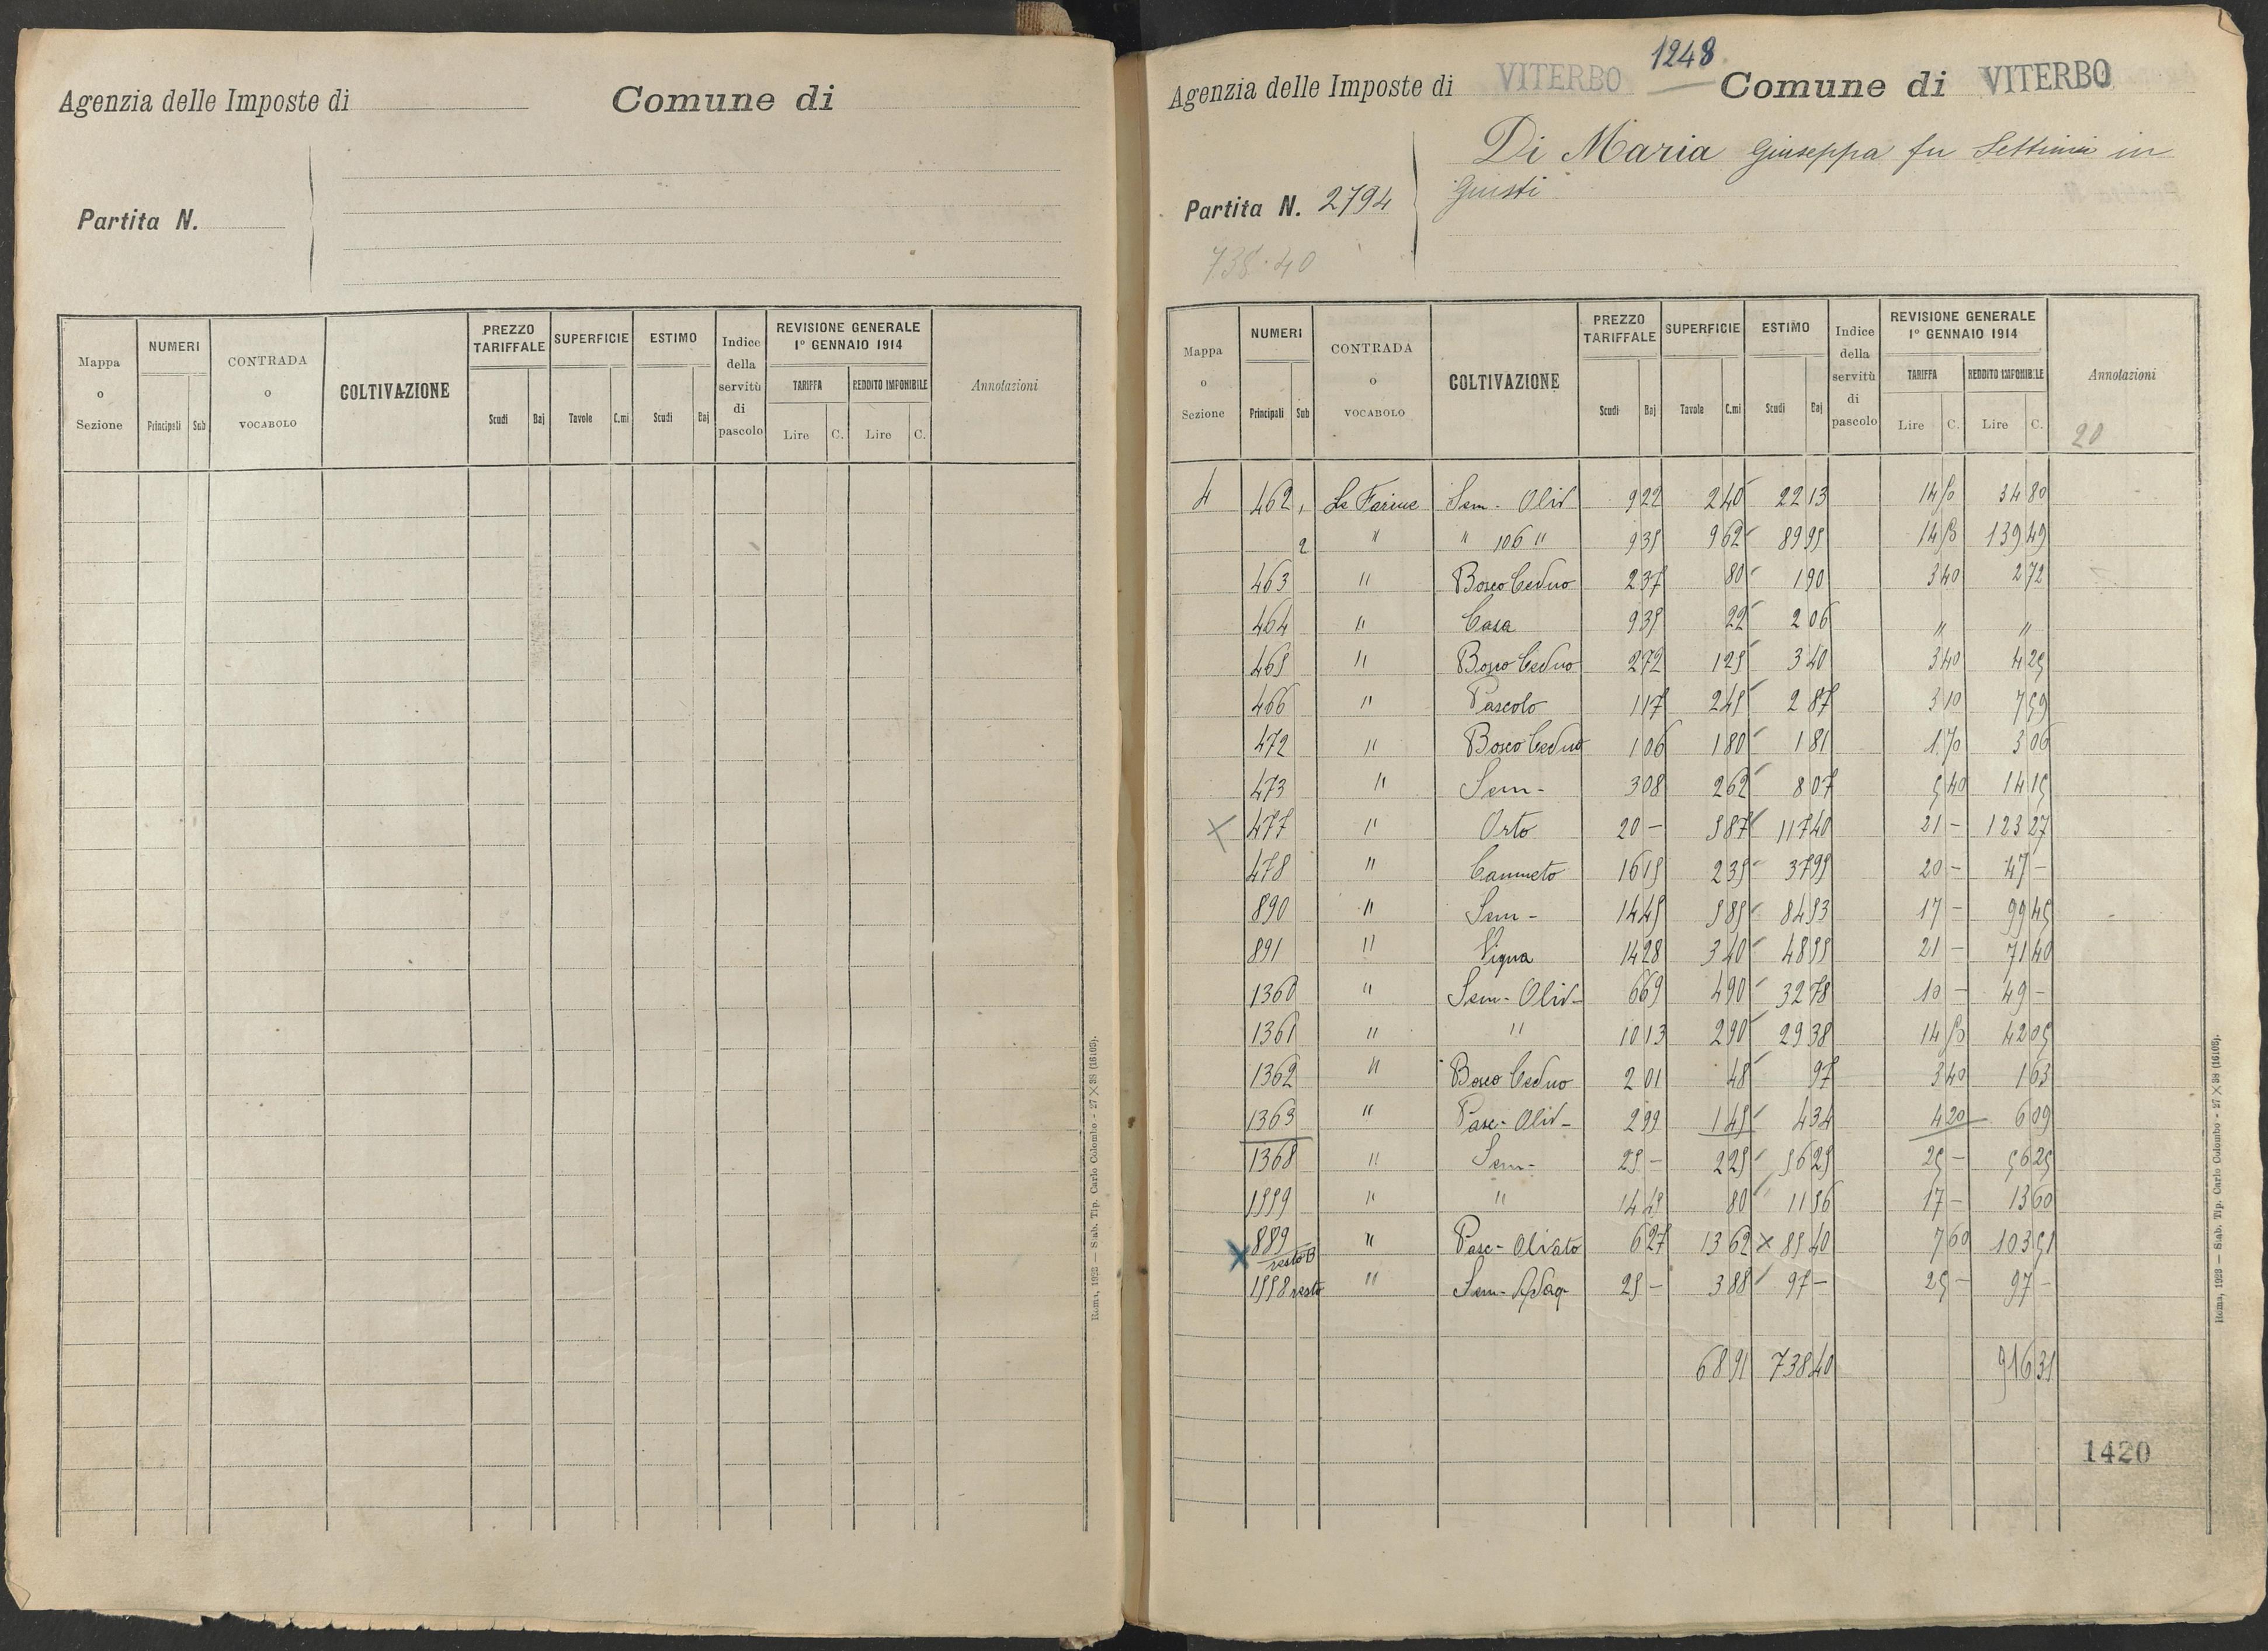 Agenzia delle Imposte di
Comune di
Partita N.
Mappa o Sezione | NUMERI Principali Sub | CONTRADA o VOCABOLO | COLTIVAZIONE | PREZZO TARIFFALE Scudi Baj | SUPERFICIE Tavole C.mi | ESTIMO Scudi Baj | Indice della servitù di pascolo | REVISIONE GENERALE 1° GENNAIO 1914 TARIFFA Lire C. REDDITO IMPONIBILE Lire C. | Annotazioni
Roma, 1923 — Stab. Tip. Carlo Colombo - 27 X 38 (16105).
1248
Agenzia delle Imposte di VITERBO Comune di VITERBO
Di Maria Giuseppa fu Settimio in
Giusti
Partita N. 2794
738.40
Mappa o Sezione | NUMERI Principali Sub | CONTRADA o VOCABOLO | COLTIVAZIONE | PREZZO TARIFFALE Scudi Baj | SUPERFICIE Tavole C.mi | ESTIMO Scudi Baj | Indice della servitù di pascolo | REVISIONE GENERALE 1° GENNAIO 1914 TARIFFA Lire C. REDDITO IMPONIBILE Lire C. | Annotazioni
20
4 462 1 Le Farine Sem. Oliv 9 22 2 40 22 13 14 50 34 80
2 " " 106 " 9 35 9 62 89 95 14 50 139 49
463 " Bosco Ceduo 2 37 80 1 90 3 40 2 72
464 " Casa 9 35 22 2 06 " "
465 " Bosco Ceduo 2 72 1 25 3 40 3 40 4 25
466 " Pascolo 1 17 2 45 2 87 3 10 7 59
472 " Bosco Ceduo 1 06 1 80 1 81 1 70 3 06
473 " Sem- 3 08 2 62 8 07 5 40 14 15
X 477 " Orto 20 - 5 87 117 40 21 - 123 27
478 " Canneto 16 15 2 35 37 95 20 - 47 -
890 " Sem- 14 45 5 85 84 53 17 - 99 45
891 " Vigna 14 28 3 40 48 55 21 - 71 40
1360 " Sem- Oliv- 6 69 4 90 32 78 10 - 49 -
1361 " " 10 13 2 90 29 38 14 50 42 05
1362 " Bosco Ceduo 2 01 48 97 3 40 1 63
1363 " Pasc- Oliv- 2 99 1 45 4 34 4 20 6 09
1368 " Sem- 25 - 2 25 56 25 25 - 56 25
1559 " " 14 45 80 11 56 17 - 13 60
X 889 resto B " Pasc- Olivato 6 27 13 62 X 85 40 7 60 103 51
1558 resto " Sem- Adacq- 25 - 3 88 97 - 25 - 97 -
68 91 738 40 916 31
1420
Roma, 1923 — Stab. Tip. Carlo Colombo - 27 X 38 (16105).